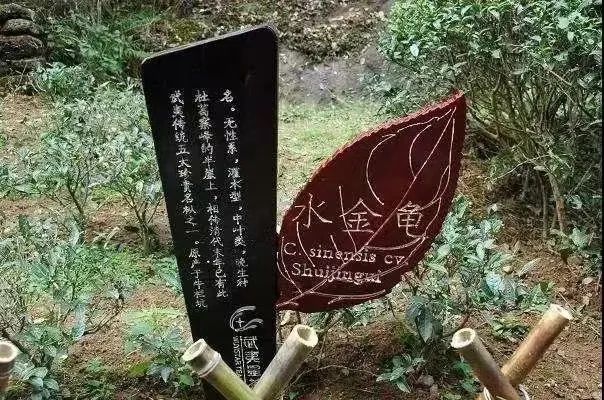 武夷传统五大珍贵名枞之一。原产于牛栏坑
杜葛寨峰的半崖上，相传清代末年已有此
名。无性系，灌木型，中叶类，晚生种
武夷星
水金龟
C. sinensis cv.
Shuijingui